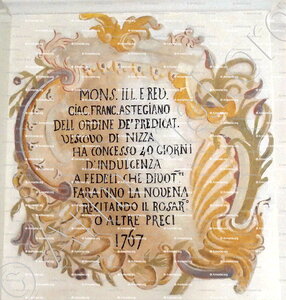 MONS. ILL. E RED.
CIAC. FRANC. ASTEGIANO
DELL ORDINE DE' PREDICAT.
VESCOVO DI NIZZA
HA CONCESSO 40 GIORNI
D'INDULGENZA
A FEDELI CHE DIVOT.TI
FARANNO LA NOVENA
RECITANDO IL ROSAR°
O ALTRE PRECI
1767